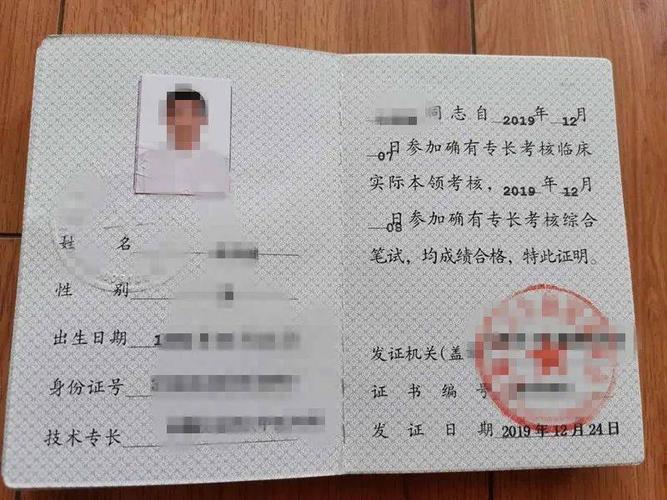 姓 名
性 别
出生日期 1
身份证号
技术专长
同志自 2019 年 12 月
07 日参加确有专长考核临床
实际本领考核，2019 年 12 月
08 日参加确有专长考核综合
笔试，均成绩合格，特此证明。
发证机关(盖
证 书 编 号
发 证 日 期 2019 年 12 月 24 日